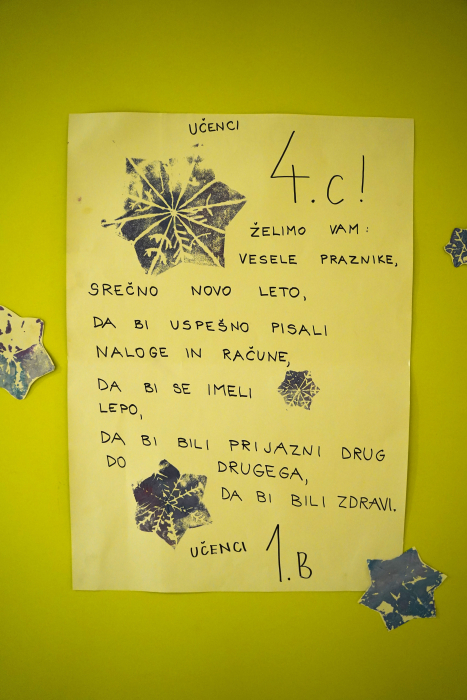 UČENCI
4.c!
ŽELIMO VAM:
VESELE PRAZNIKE,
SREČNO NOVO LETO,
DA BI USPEŠNO PISALI
NALOGE IN RAČUNE,
DA BI SE IMELI
LEPO,
DA BI BILI PRIJAZNI DRUG
DO DRUGEGA,
DA BI BILI ZDRAVI.
UČENCI 1.B